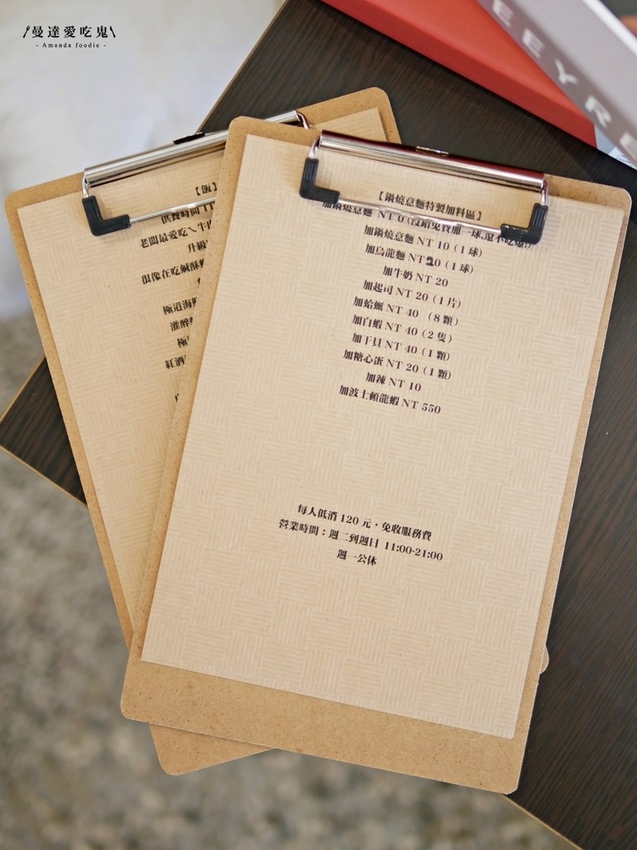 曼達愛吃鬼
- Amanda foodie -
EEYRE
【飯
供餐時間
老闆最愛吃
升級
很像在吃
【鍋燒意麵特製加料區】
加鍋燒意麵 NT 0 (沒錯免費加一球,還不吃爆!)
加鍋燒意麵 NT 10 (1 球)
加烏龍麵 NT 20 (1 球)
加牛奶 NT 20
加起司 NT 20 (1 片)
加蛤蠣 NT 40 (8 顆)
加白蝦 NT 40 (2 隻)
加干貝 NT 40 (1 顆)
加糖心蛋 NT 20 (1 顆)
加辣 NT 10
加波士頓龍蝦 NT 550
每人低消 120 元，免收服務費
營業時間：週二到週日 11:00-21:00
週一公休